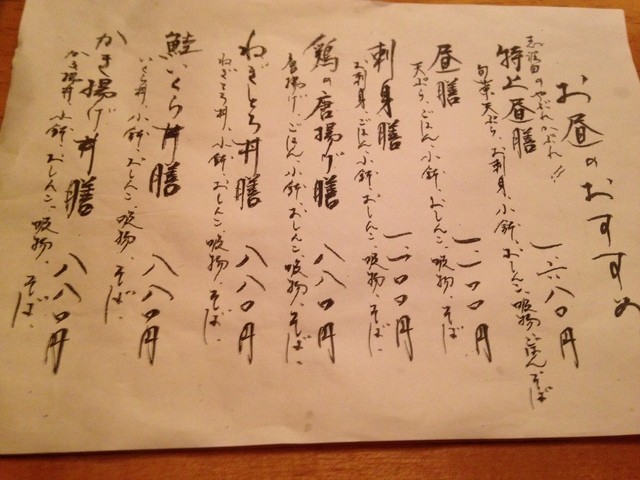 お昼のおすすめ
志波田のやぶれかぶれ!!
特上昼膳 一六八〇円
旬菜天ぷら、お刺身、小鉢、おしんこ、吸物、ごはん、そば
昼膳 一二〇〇円
天ぷら、ごはん、小鉢、おしんこ、吸物、そば
刺身膳 一二〇〇円
お刺身、ごはん、小鉢、おしんこ、吸物、そば、
鶏の唐揚げ膳 八八〇円
唐揚げ、ごはん、小鉢、おしんこ、吸物、そば、
ねぎとろ丼膳 八八〇円
ねぎとろ丼、小鉢、おしんこ、吸物、そば、
鮭いくら丼膳 八八〇円
いくら丼、小鉢、おしんこ、吸物、そば、
かき揚げ丼膳 八八〇円
かき揚丼、小鉢、おしんこ、吸物、そば、